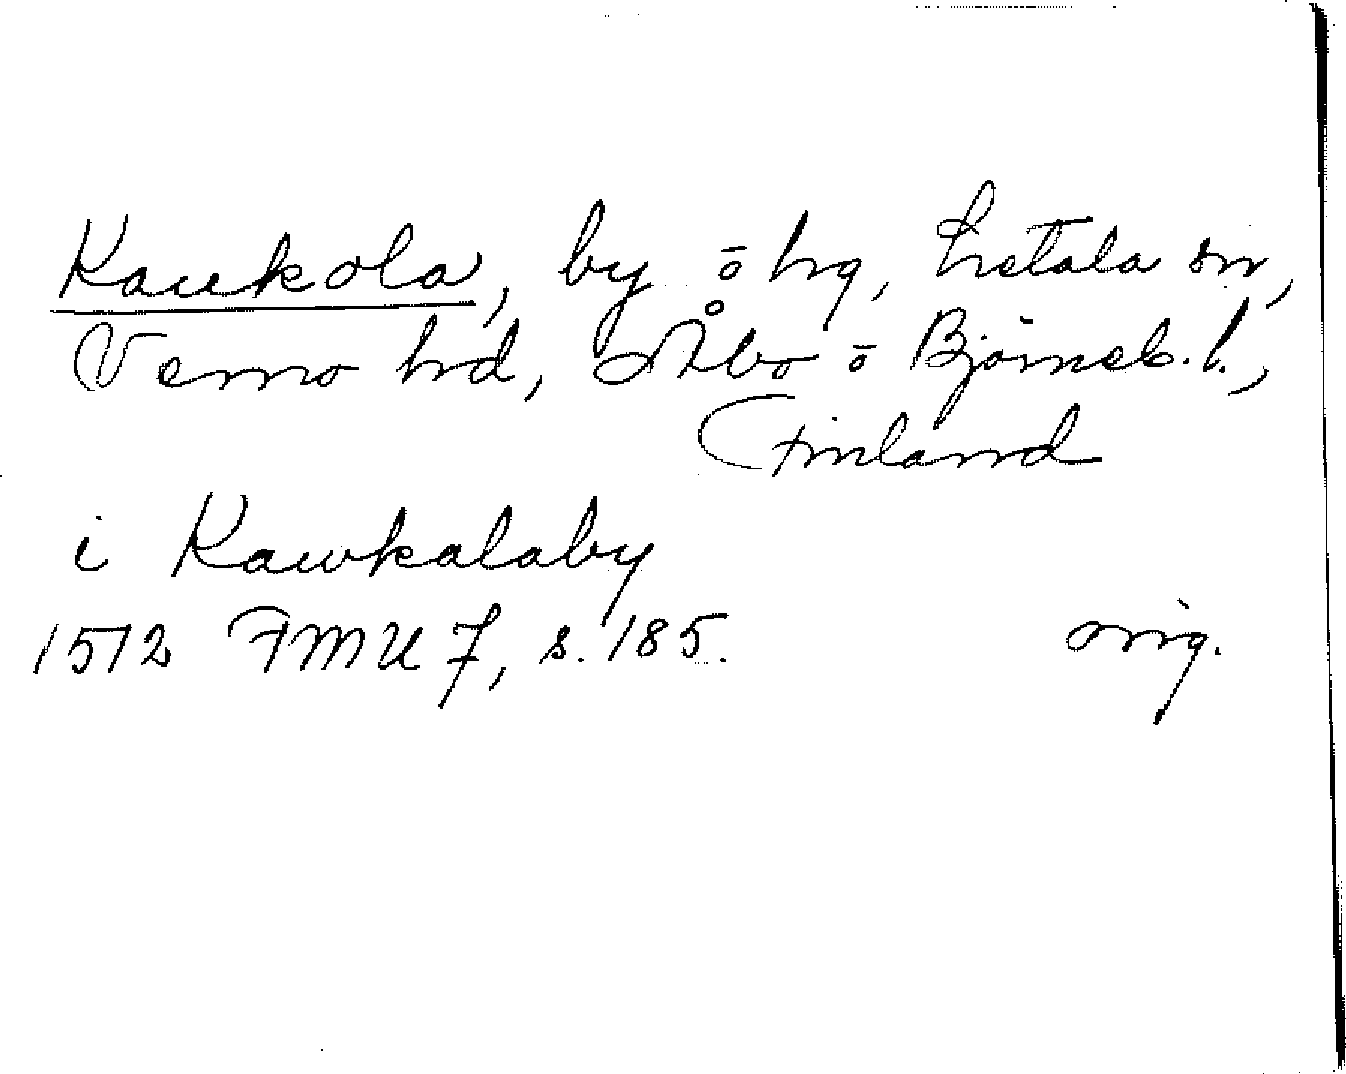 Kaukola, by ō hg, Letala sn,
Vemo hd, Åbo ō Björneb. l.,
Finland
i Kawkalaby
1512 FMU 7, s. 185. orig.